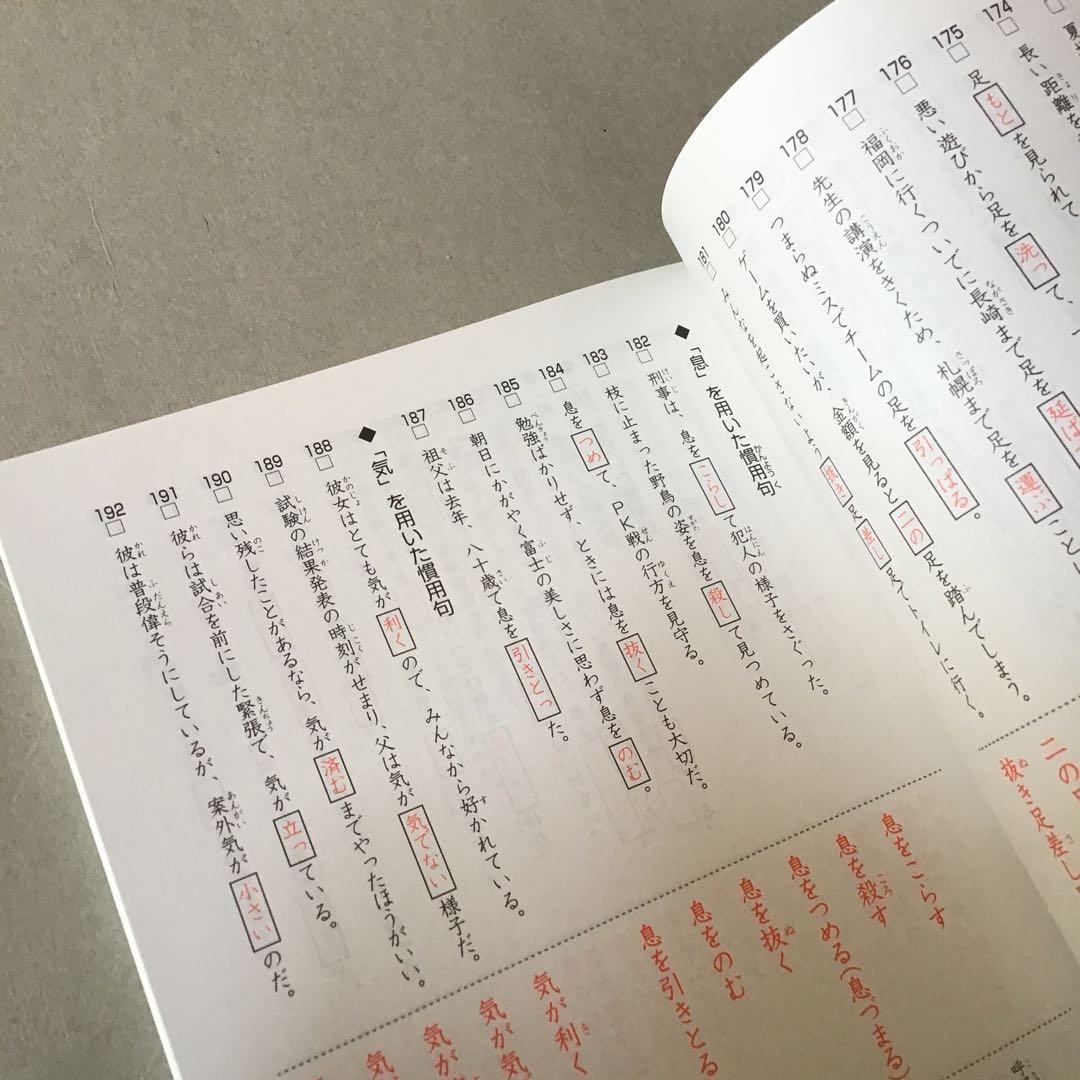 夏
174□ 長い距離を
175□ 足もとを見られて
176□ 悪い遊びから足を洗って、
177□ 福岡に行くついでに長崎まで足を延ば
178□ 先生の講演をきくため、札幌まで足を運ぶこと
179□ つまらぬミスでチームの足を引っぱる。
180□ ゲームを買いたいが、金額を見ると二の足を踏んでしまう。
181□ みんなを起こさないよう抜き足差し足でトイレに行く。
◆「息」を用いた慣用句
182□ 刑事は、息をこらして犯人の様子をさぐった。
183□ 枝に止まった野鳥の姿を息を殺して見つめている。
184□ 息をつめて、PK戦の行方を見守る。
185□ 勉強ばかりせず、ときには息を抜くことも大切だ。
186□ 朝日にかがやく富士の美しさに思わず息をのむ。
187□ 祖父は去年、八十歳で息を引きとった。
◆「気」を用いた慣用句
188□ 彼女はとても気が利くので、みんなから好かれている。
189□ 試験の結果発表の時刻がせまり、父は気が気でない様子だ。
190□ 思い残したことがあるなら、気が済むまでやったほうがいい。
191□ 彼らは試合を前にした緊張で、気が立っている。
192□ 彼は普段偉そうにしているが、案外気が小さいのだ。
二の
抜き足差し
息をこらす
息を殺す
息をつめる(息づまる)
息を抜く
息をのむ
息を引きとる
気が利く
気が気
気が
気